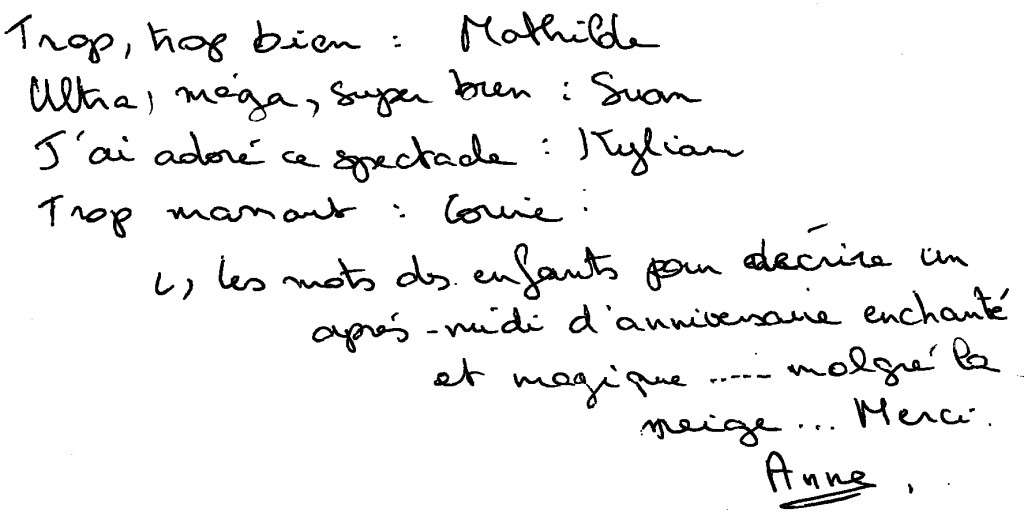 Trop, trop bien : Mathilde
Ultra, méga, super bien : Suan
J'ai adoré ce spectacle : Kylian
Trop marrant :
↳ les mots des enfants pour décrire un
après-midi d'anniversaire enchanté
et magique ..... malgré la
neige... Merci.
Anne,